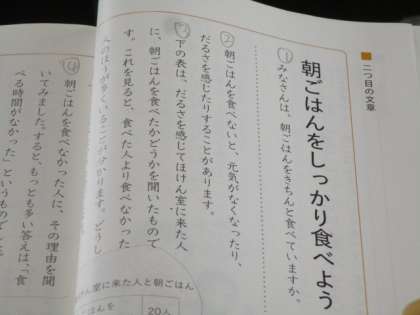 二つ目の文章
朝ごはんをしっかり食べよう
①みなさんは、朝ごはんをきちんと食べていますか。
②朝ごはんを食べないと、元気がなくなったり、
だるさを感じたりすることがあります。
下の表は、だるさを感じてほけん室に来た人
に、朝ごはんを食べたかどうかを聞いたもので
す。これを見ると、食べた人より食べなかった
人のほうが多くいることが分かります。どうし
④朝ごはんを食べなかった人に、その理由を聞
いてみました。すると、もっとも多い答えは、「食
べる時間がなかった」というもので
けん室に来た人と朝ごはん
はんを
20人